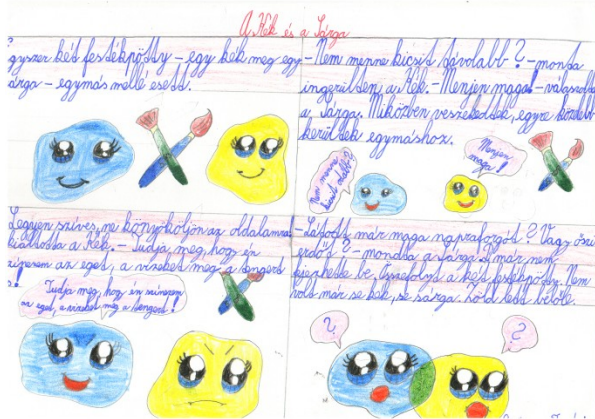 A Kék és a Sárga
gyszer két festékpötty – egy kék meg egy
árga – egymás mellé esett.
– Nem menne kicsit távolabb? – mondta
ingerülten a Kék. – Menjen maga! – válaszolta
a Sárga. Miközben veszekedtek, egyre közelebb
kerültek egymáshoz.
Nem menne
kicsit
Menjen
maga!
Legyen szíves, ne könyököljön az oldalamra!
kiáltotta a Kék. – Tudja meg, hogy én
színezem az eget, a vizeket meg a tengert
s!
Tudja meg, hogy én színezem
az eget, a vizeket meg a tengert!
– Látott már maga napraforgót? Vagy őszi
erdőt? – mondta a Sárga. S már nem
fejezhette be. Összefolyt a két festékpötty. Nem
volt már se kék, se sárga. Zöld lett belőle.
?
?